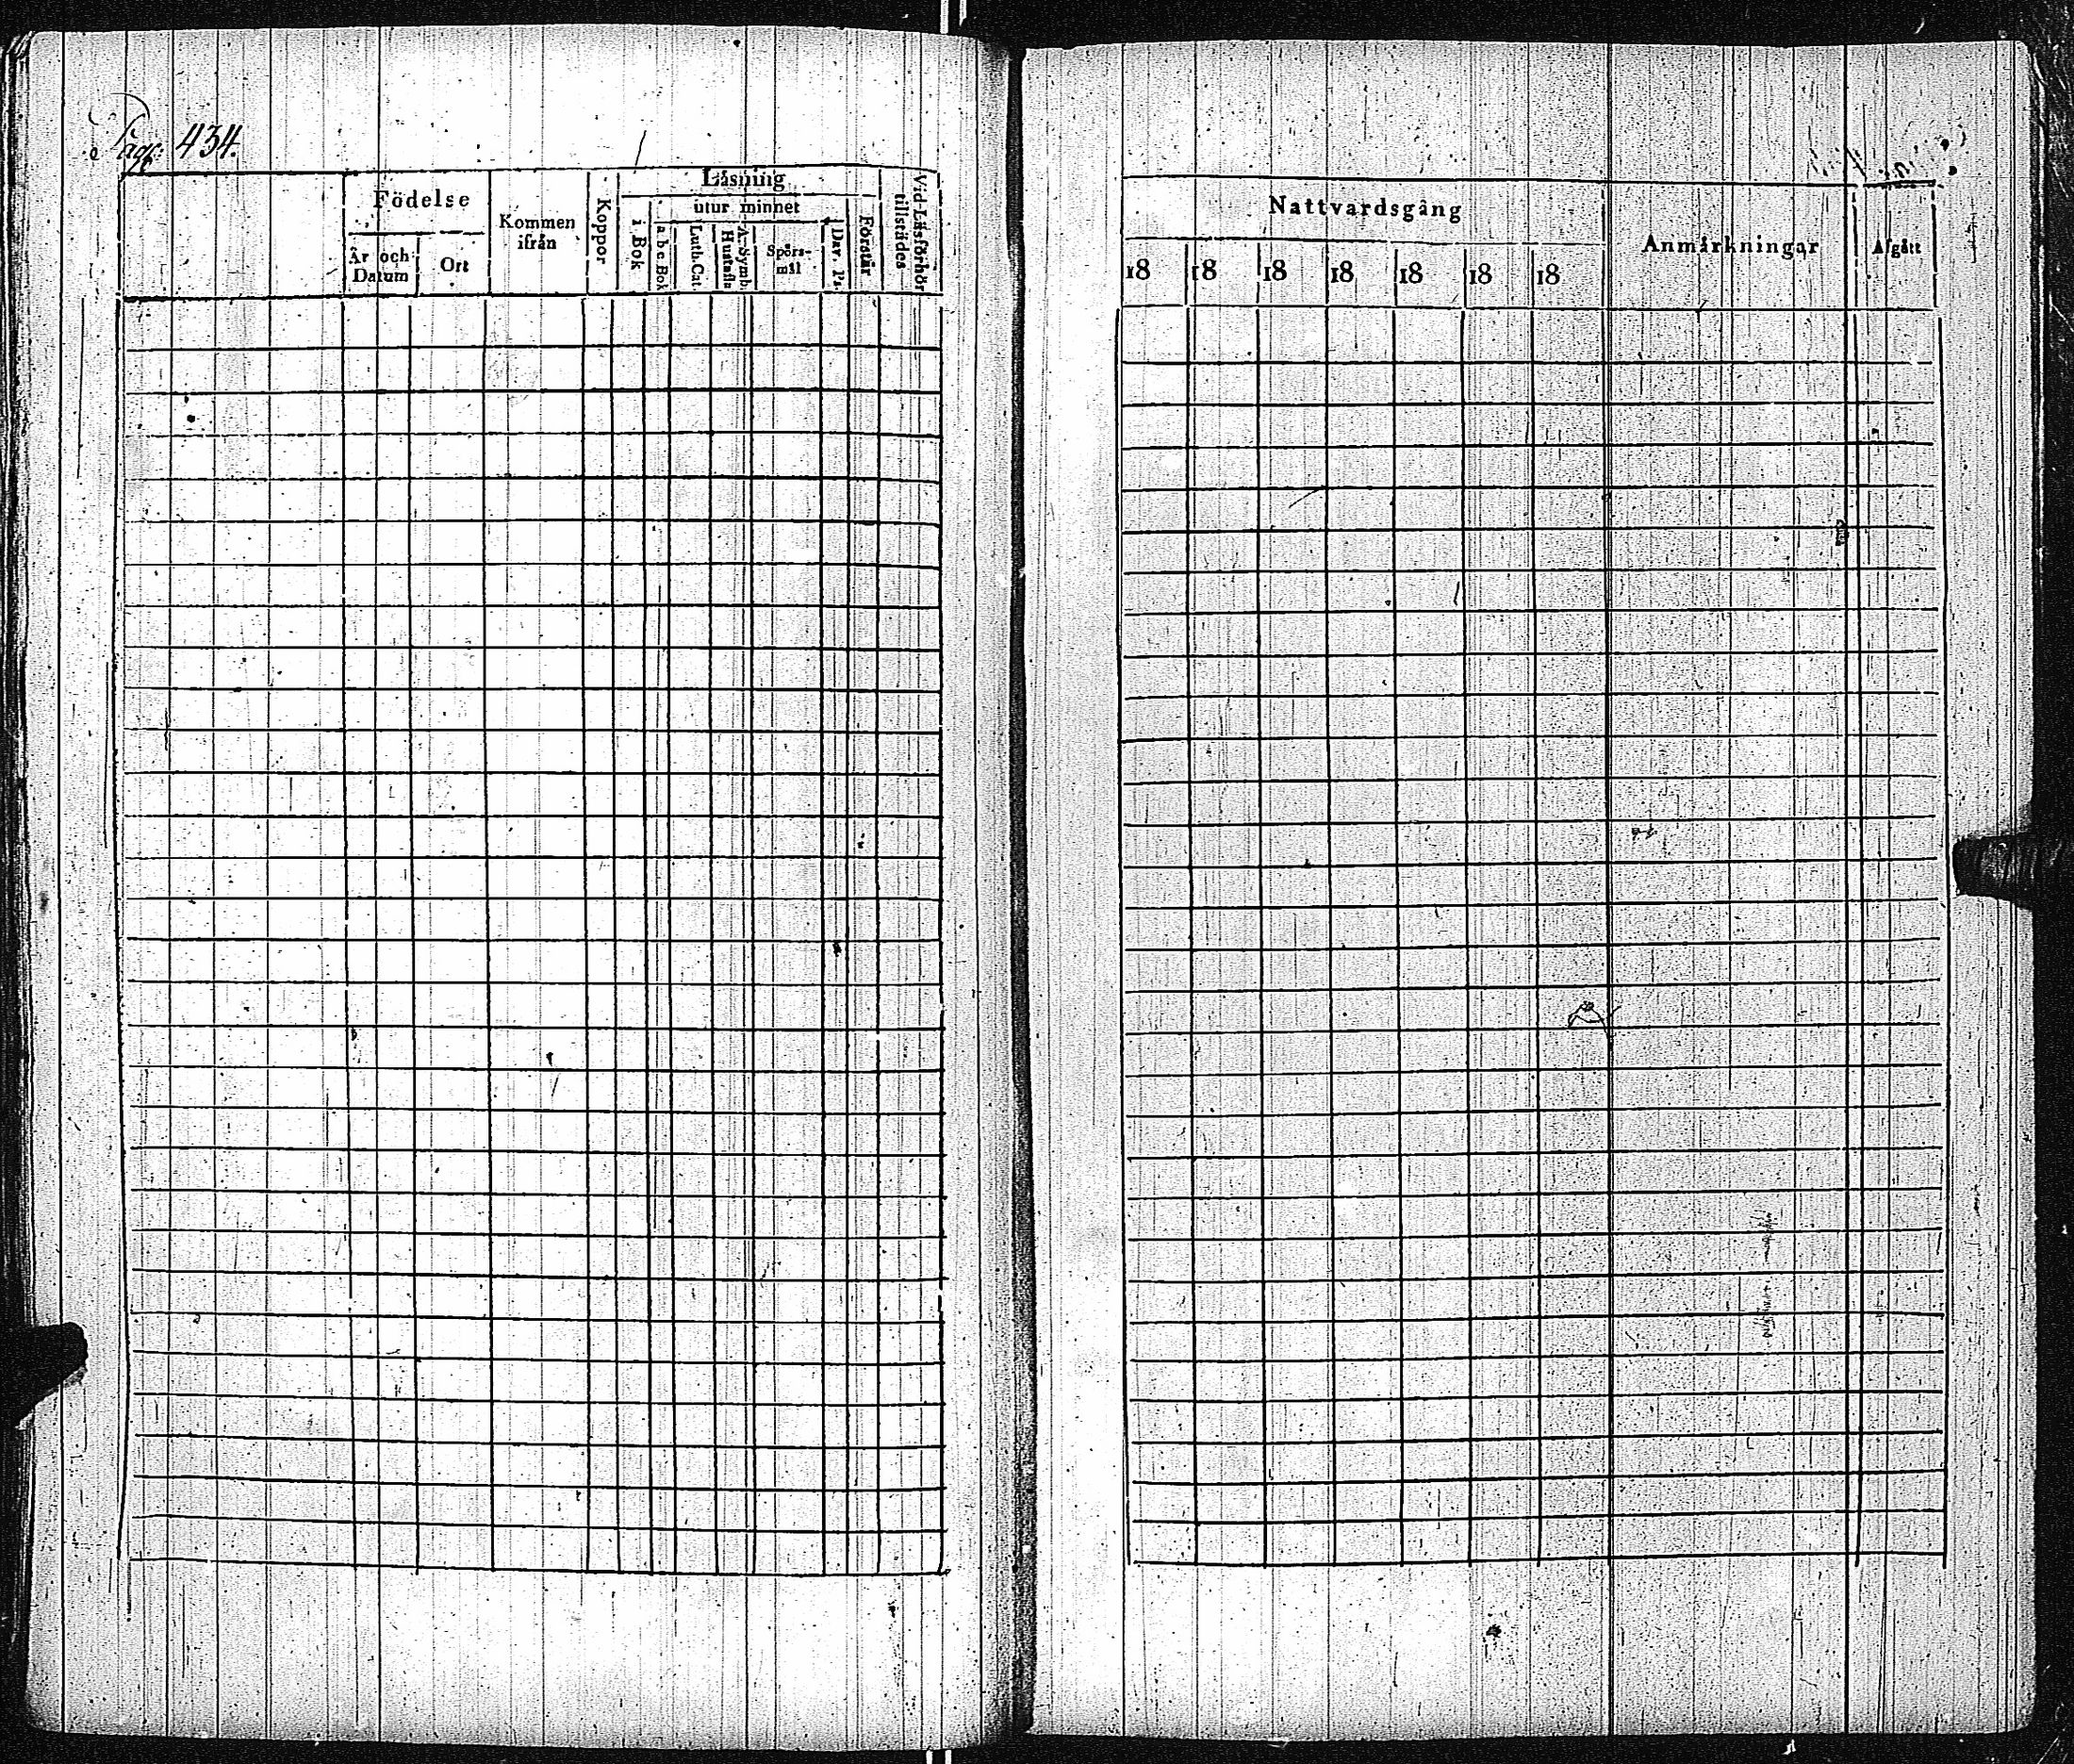 Pag: 434.
Födelse
År och Datum
Ort
Kommen ifrån
Koppor
Läsning
i Bok
utur minnet
a b c Bok
Luth. Cat
A. Symb. Hustafla
Spörs-mål
Dav. Ps.
Förstår
Vid Läsförhör tillstädes
Nattvardsgång
18 18 18 18 18 18 18
Anmärkningar
Afgått